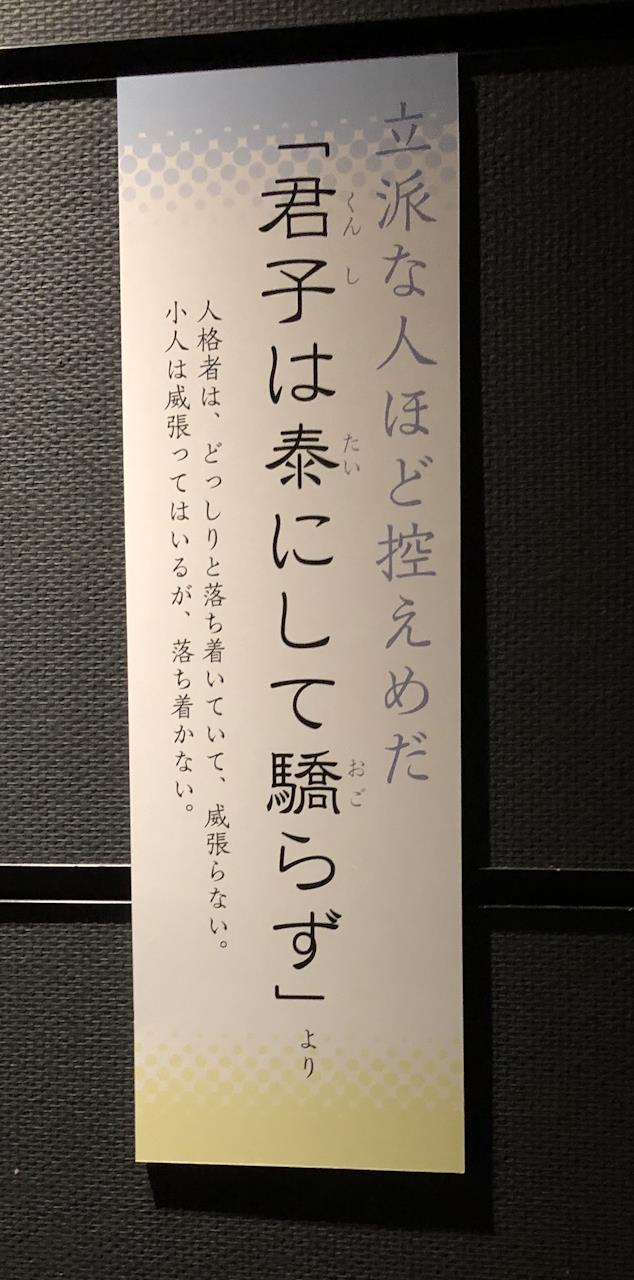 立派な人ほど控えめだ
「君子は泰にして驕らず」より
くんし
たい
おご
人格者は、どっしりと落ち着いていて、威張らない。
小人は威張ってはいるが、落ち着かない。